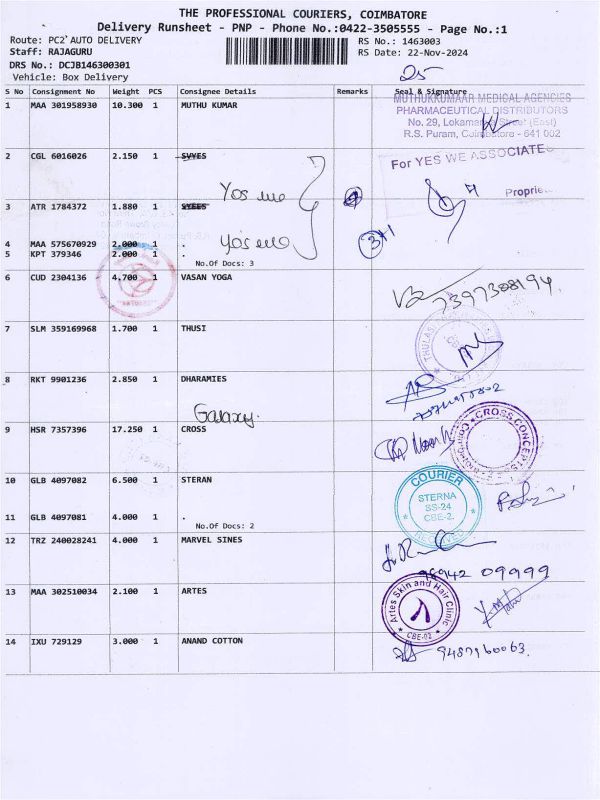 THE PROFESSIONAL COURIERS, COIMBATORE
Delivery Runsheet - PNP - Phone No.:0422-3505555 - Page No.:1
Route: PC2 AUTO DELIVERY RS No.: 1463003
Staff: RAJAGURU RS Date: 22-Nov-2024
DRS No.: DCJB146300301
Vehicle: Box Delivery
25
S No Consignment No Weight PCS Consignee Details Remarks Seal & Signature
1 MAA 301958930 10.300 1 MUTHU KUMAR
MUTHUKKUMAAR MEDICAL AGENCIES
PHARMACEUTICAL DISTRIBUTORS
No. 29, Lokamanya Street (East)
R.S. Puram, Coimbatore - 641 002
2 CGL 6016026 2.150 1 SVYES
For YES WE ASSOCIATE
Proprie
3 ATR 1784372 1.880 1
4 MAA 575670929 2.000 1 .
5 KPT 379346 2.000 1 .
3+1
No.Of Docs: 3
6 CUD 2304136 4.700 1 VASAN YOGA
7397308194
7 SLM 359169968 1.700 1 THUSI
8 RKT 9901236 2.850 1 DHARAMIES
Galaxy.
9 HSR 7357396 17.250 1 CROSS
CROSS CONCEPTS
10 GLB 4097082 6.500 1 STERAN
COURIER
STERNA
SS-24
CBE-2.
RECEIVED
11 GLB 4097081 4.000 1 .
No.Of Docs: 2
12 TRZ 240028241 4.000 1 MARVEL SINES
98942 09999
13 MAA 302510034 2.100 1 ARTES
Artes Skin and Hair Clinic
CBE-02
14 IXU 729129 3.000 1 ANAND COTTON
9487960063.